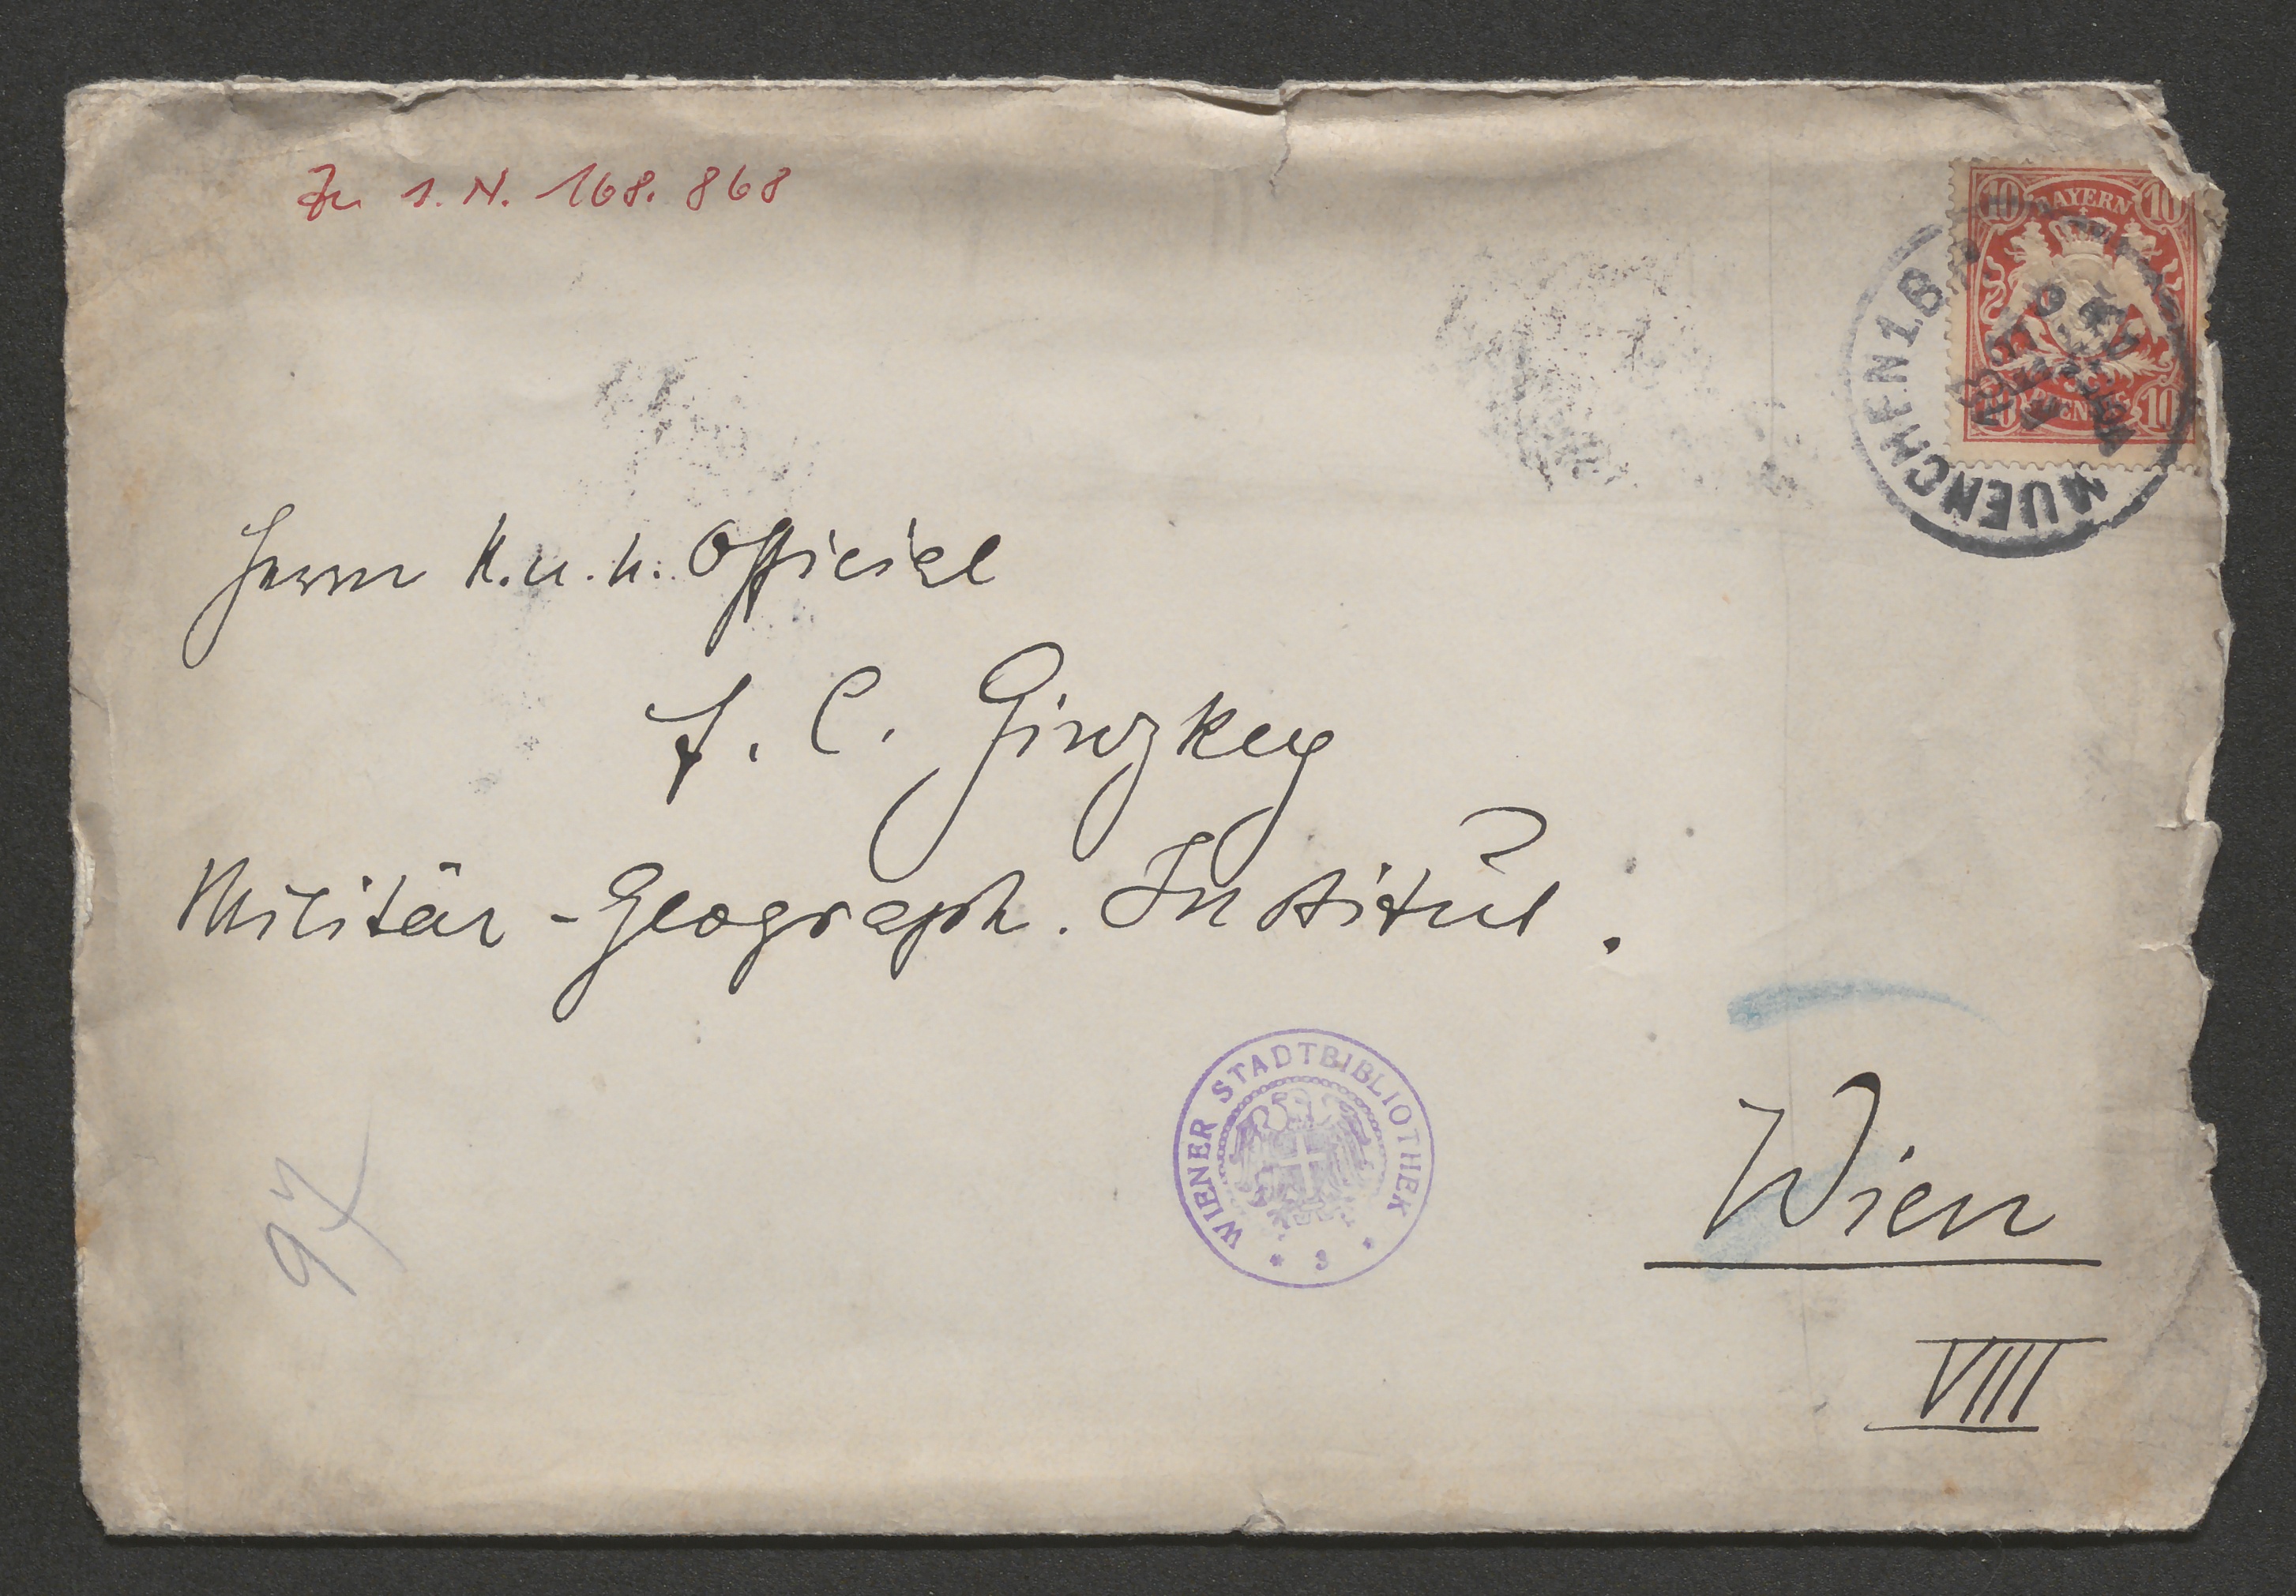 Zu I. N. 168.868
10 BAYERN 10
10 PFENNIG 10
MUENCHEN 1. B.
Herrn K. u. k. Official
F. C. Ginzkey
Militär-Geograph. Institut.
WIENER STADTBIBLIOTHEK
* 3 *
Wien
VIII
97